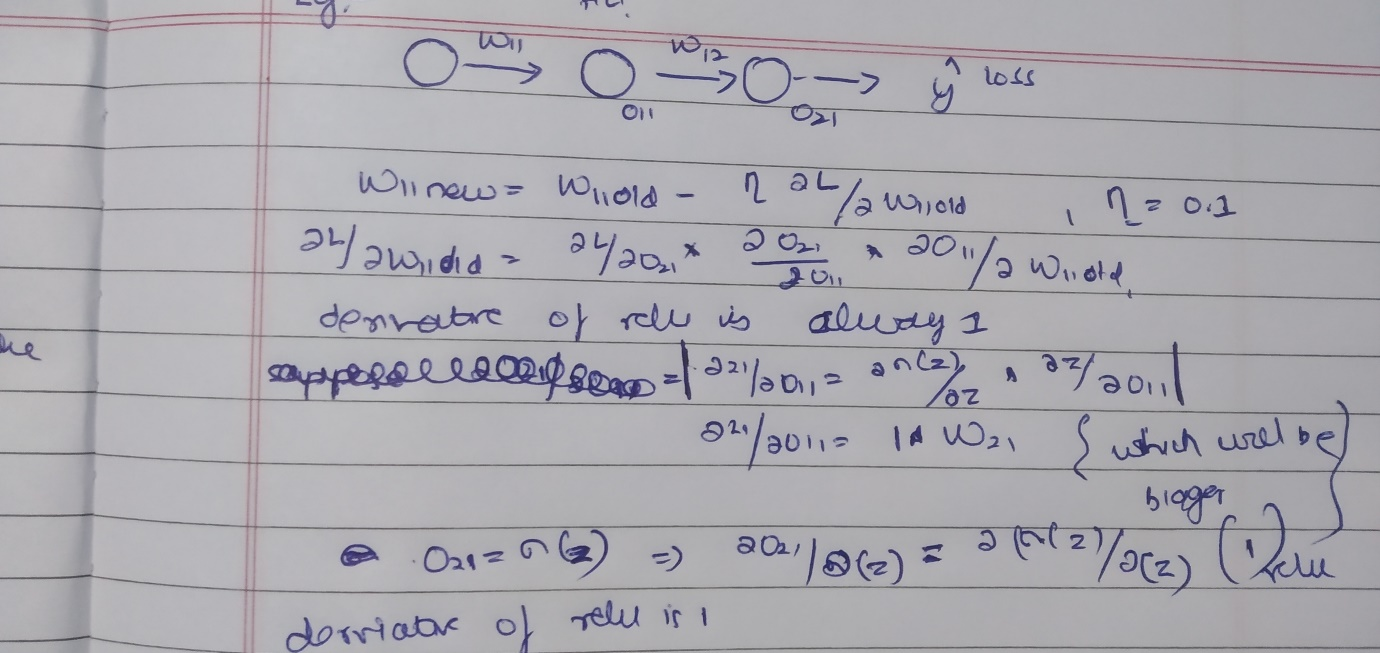 Eg.
w11 w12 ŷ loss
O11 O21
W11new = W11old - η ∂L/∂W11old , η = 0.1
∂L/∂W11old = ∂L/∂O21 * ∂O21/∂O11 * ∂O11/∂W11old
derivative of relu is alwayy 1
he
= | ∂21/∂O11 = ∂σ(z)/∂z * ∂z/∂O11 |
∂21/∂O11 = 1 * W21 { which will be
bigger }
O21 = σ(z) => ∂O21/∂(z) = ∂(σ(z)/∂(z) (1) relu
derivative of relu is 1